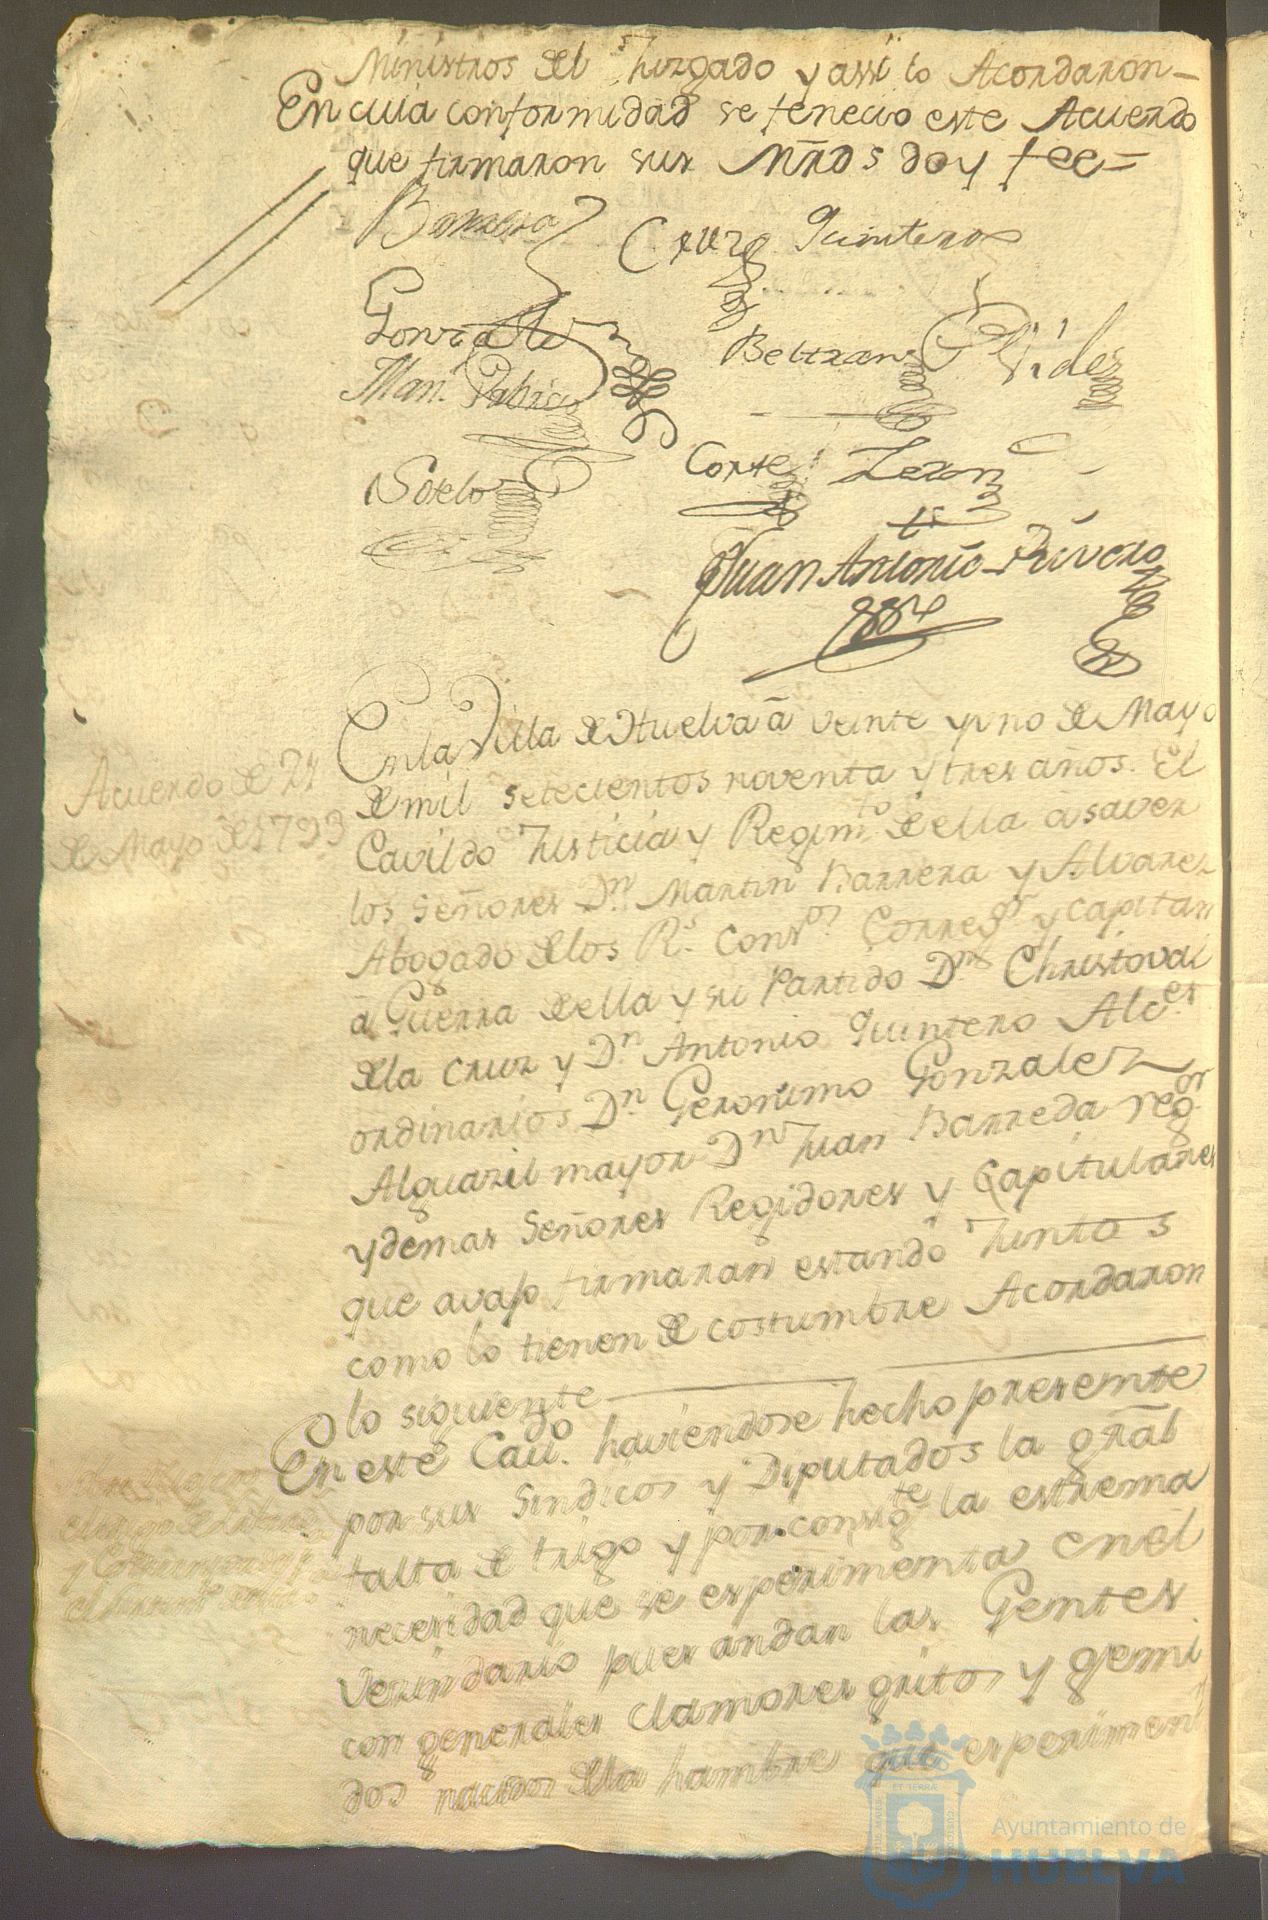 Ministros del Juzgado y assi lo Acordaron_
En cuia conformidad se fenecio este Acuerdo
que firmaron sus Mrds doy fee=
Barrera
Cruz Quintero
Gonzalez
Beltran Vides
Man.
Sotelo
Corte Leron
Juan Antonio Rivero
En la Villa de Huelva â veinte y uno de Mayo
Acuerdo de 21
de mil setecientos noventa y tres años. El
de Mayo de 1793
Cavildo Justicia y Regimto de ella â saver
los Señores Dn. Martin Barrera y Alvarez
Abogado de los Rs. Consos. Corregor y capitan
â Guerra de ella y su Partido Dn Christoval
de la Cruz y Dn. Antonio Quintero Alces
ordinarios Dn. Geronimo Gonzalez
Alguazil mayor Dn Juan Barreda regor
y demas Señores Regidores y Capitulares
que avajo firmaran estando Juntos
como lo tienen de costumbre Acordaron
lo siguiente
En este Cavdo. haviendose hecho presente
por sus Sindicos y Diputados la gral
falta de trigo y por consigte la estrema
necesidad que se esperimenta en el
Vezindario pues andan las Gentes
con generales clamores gritos y gemi
dos nacidos de la hambre que esperimen
Ayuntamiento de
HUELVA